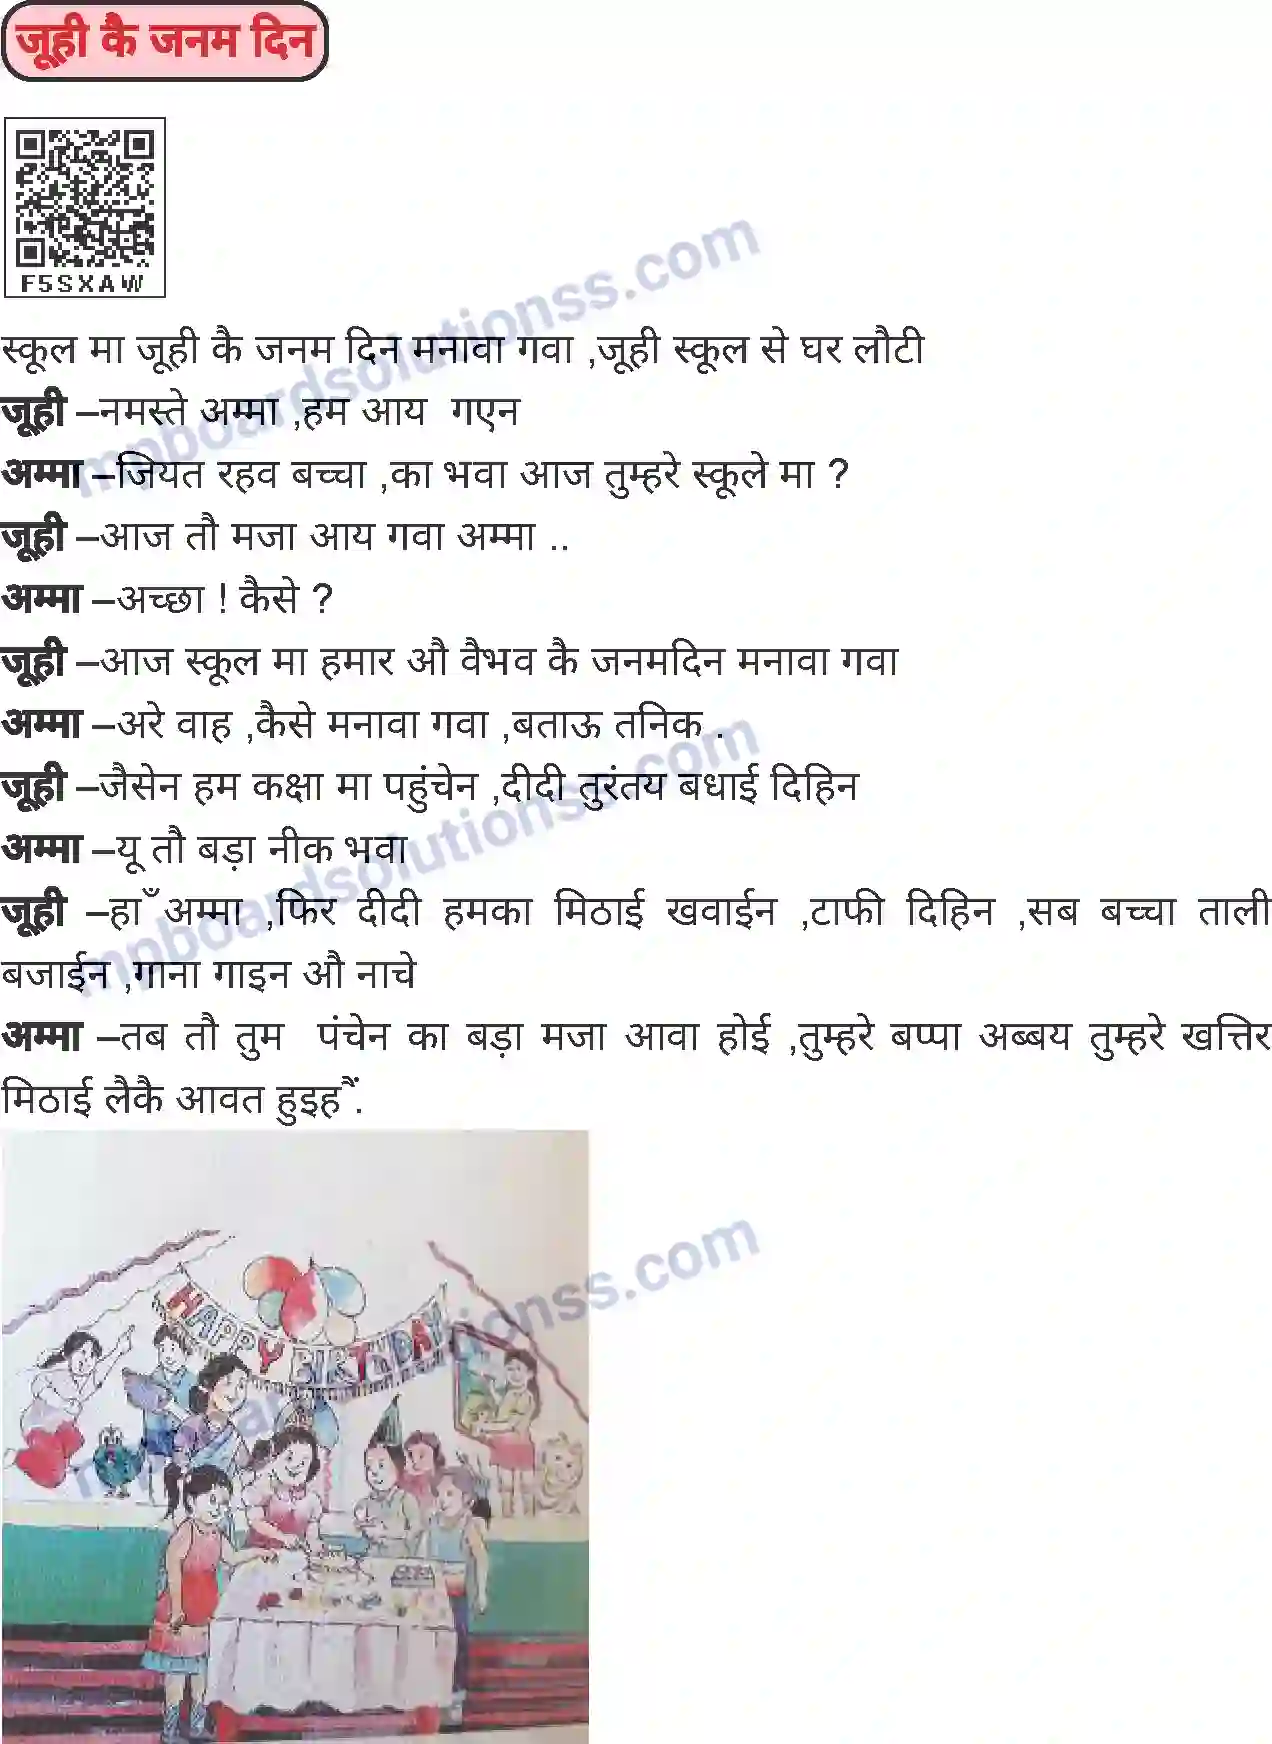 जूही कै जनम दिन
F5SXAW
स्कूल मा जूही कै जनम दिन मनावा गवा ,जूही स्कूल से घर लौटी
जूही –नमस्ते अम्मा ,हम आय गएन
अम्मा –जियत रहव बच्चा ,का भवा आज तुम्हरे स्कूले मा ?
जूही –आज तौ मजा आय गवा अम्मा ..
अम्मा –अच्छा ! कैसे ?
जूही –आज स्कूल मा हमार औ वैभव कै जनमदिन मनावा गवा
अम्मा –अरे वाह ,कैसे मनावा गवा ,बताऊ तनिक .
जूही –जैसेन हम कक्षा मा पहुंचेन ,दीदी तुरंतय बधाई दिहिन
अम्मा –यू तौ बड़ा नीक भवा
जूही –हाँ अम्मा ,फिर दीदी हमका मिठाई खवाईन ,टाफी दिहिन ,सब बच्चा ताली
बजाईन ,गाना गाइन औ नाचे
अम्मा –तब तौ तुम पंचेन का बड़ा मजा आवा होई ,तुम्हरे बप्पा अब्बय तुम्हरे खत्तिर
मिठाई लैकै आवत हुइहैं.
HAPPY BIRTHDAY
mpboardsolutionss.com
mpboardsolutionss.com
mpboardsolutionss.com